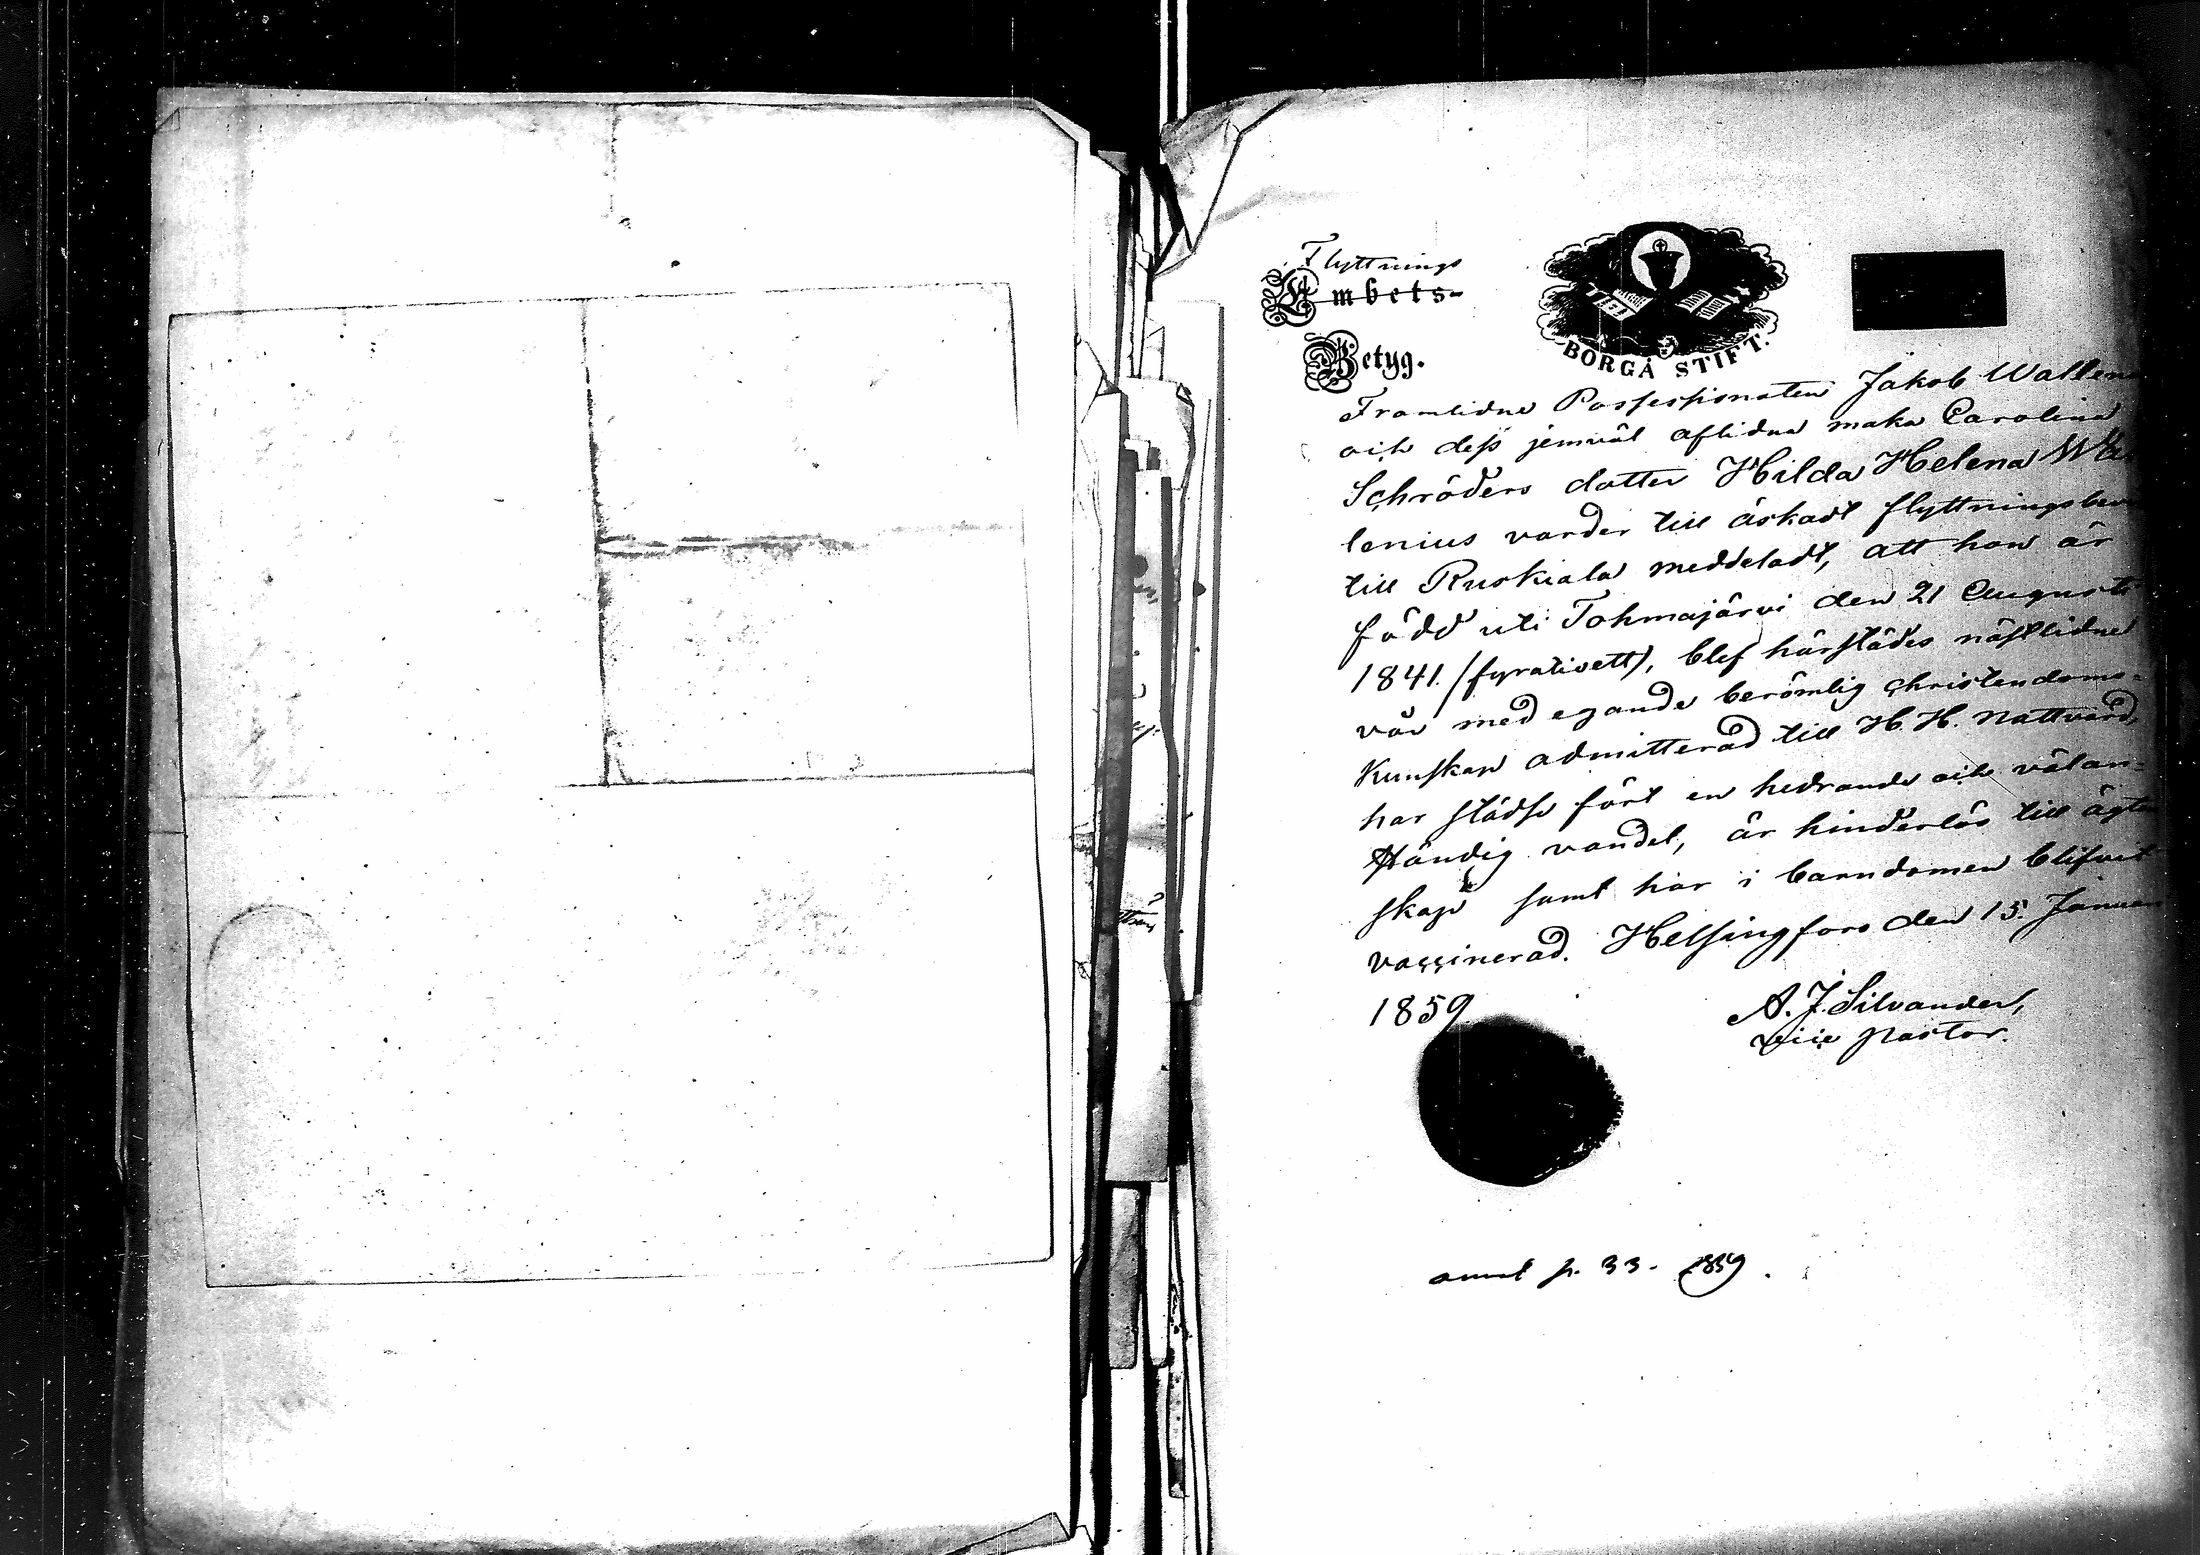 Flyttnings
Ambets-
Betyg.
BORGÅ STIFT.
Framlidne Possessionaten Jakob Wallen
och dess jemväl aflidna maka Carolina
Schröders dotter Hilda Helena Wa
lenius varder till äskadt flyttningsbevi
till Ruskiala meddeladt, att hon är
född uti Tohmajärvi den 21 Augusti
1841. (fyrationett), blef härstädes nästlidne
vår med egande berömlig christendoms-
kunskap admitterad till H. H. Nattvard,
har städse fört en hedrande och välan-
ständig vandel, är hinderlös till ägta
skap samt har i barndomen blifvit
vaccinerad. Helsingfors den 15. Januari
1859
A. J. Silvander,
Vice Pastor.
annot p. 33. 1859.